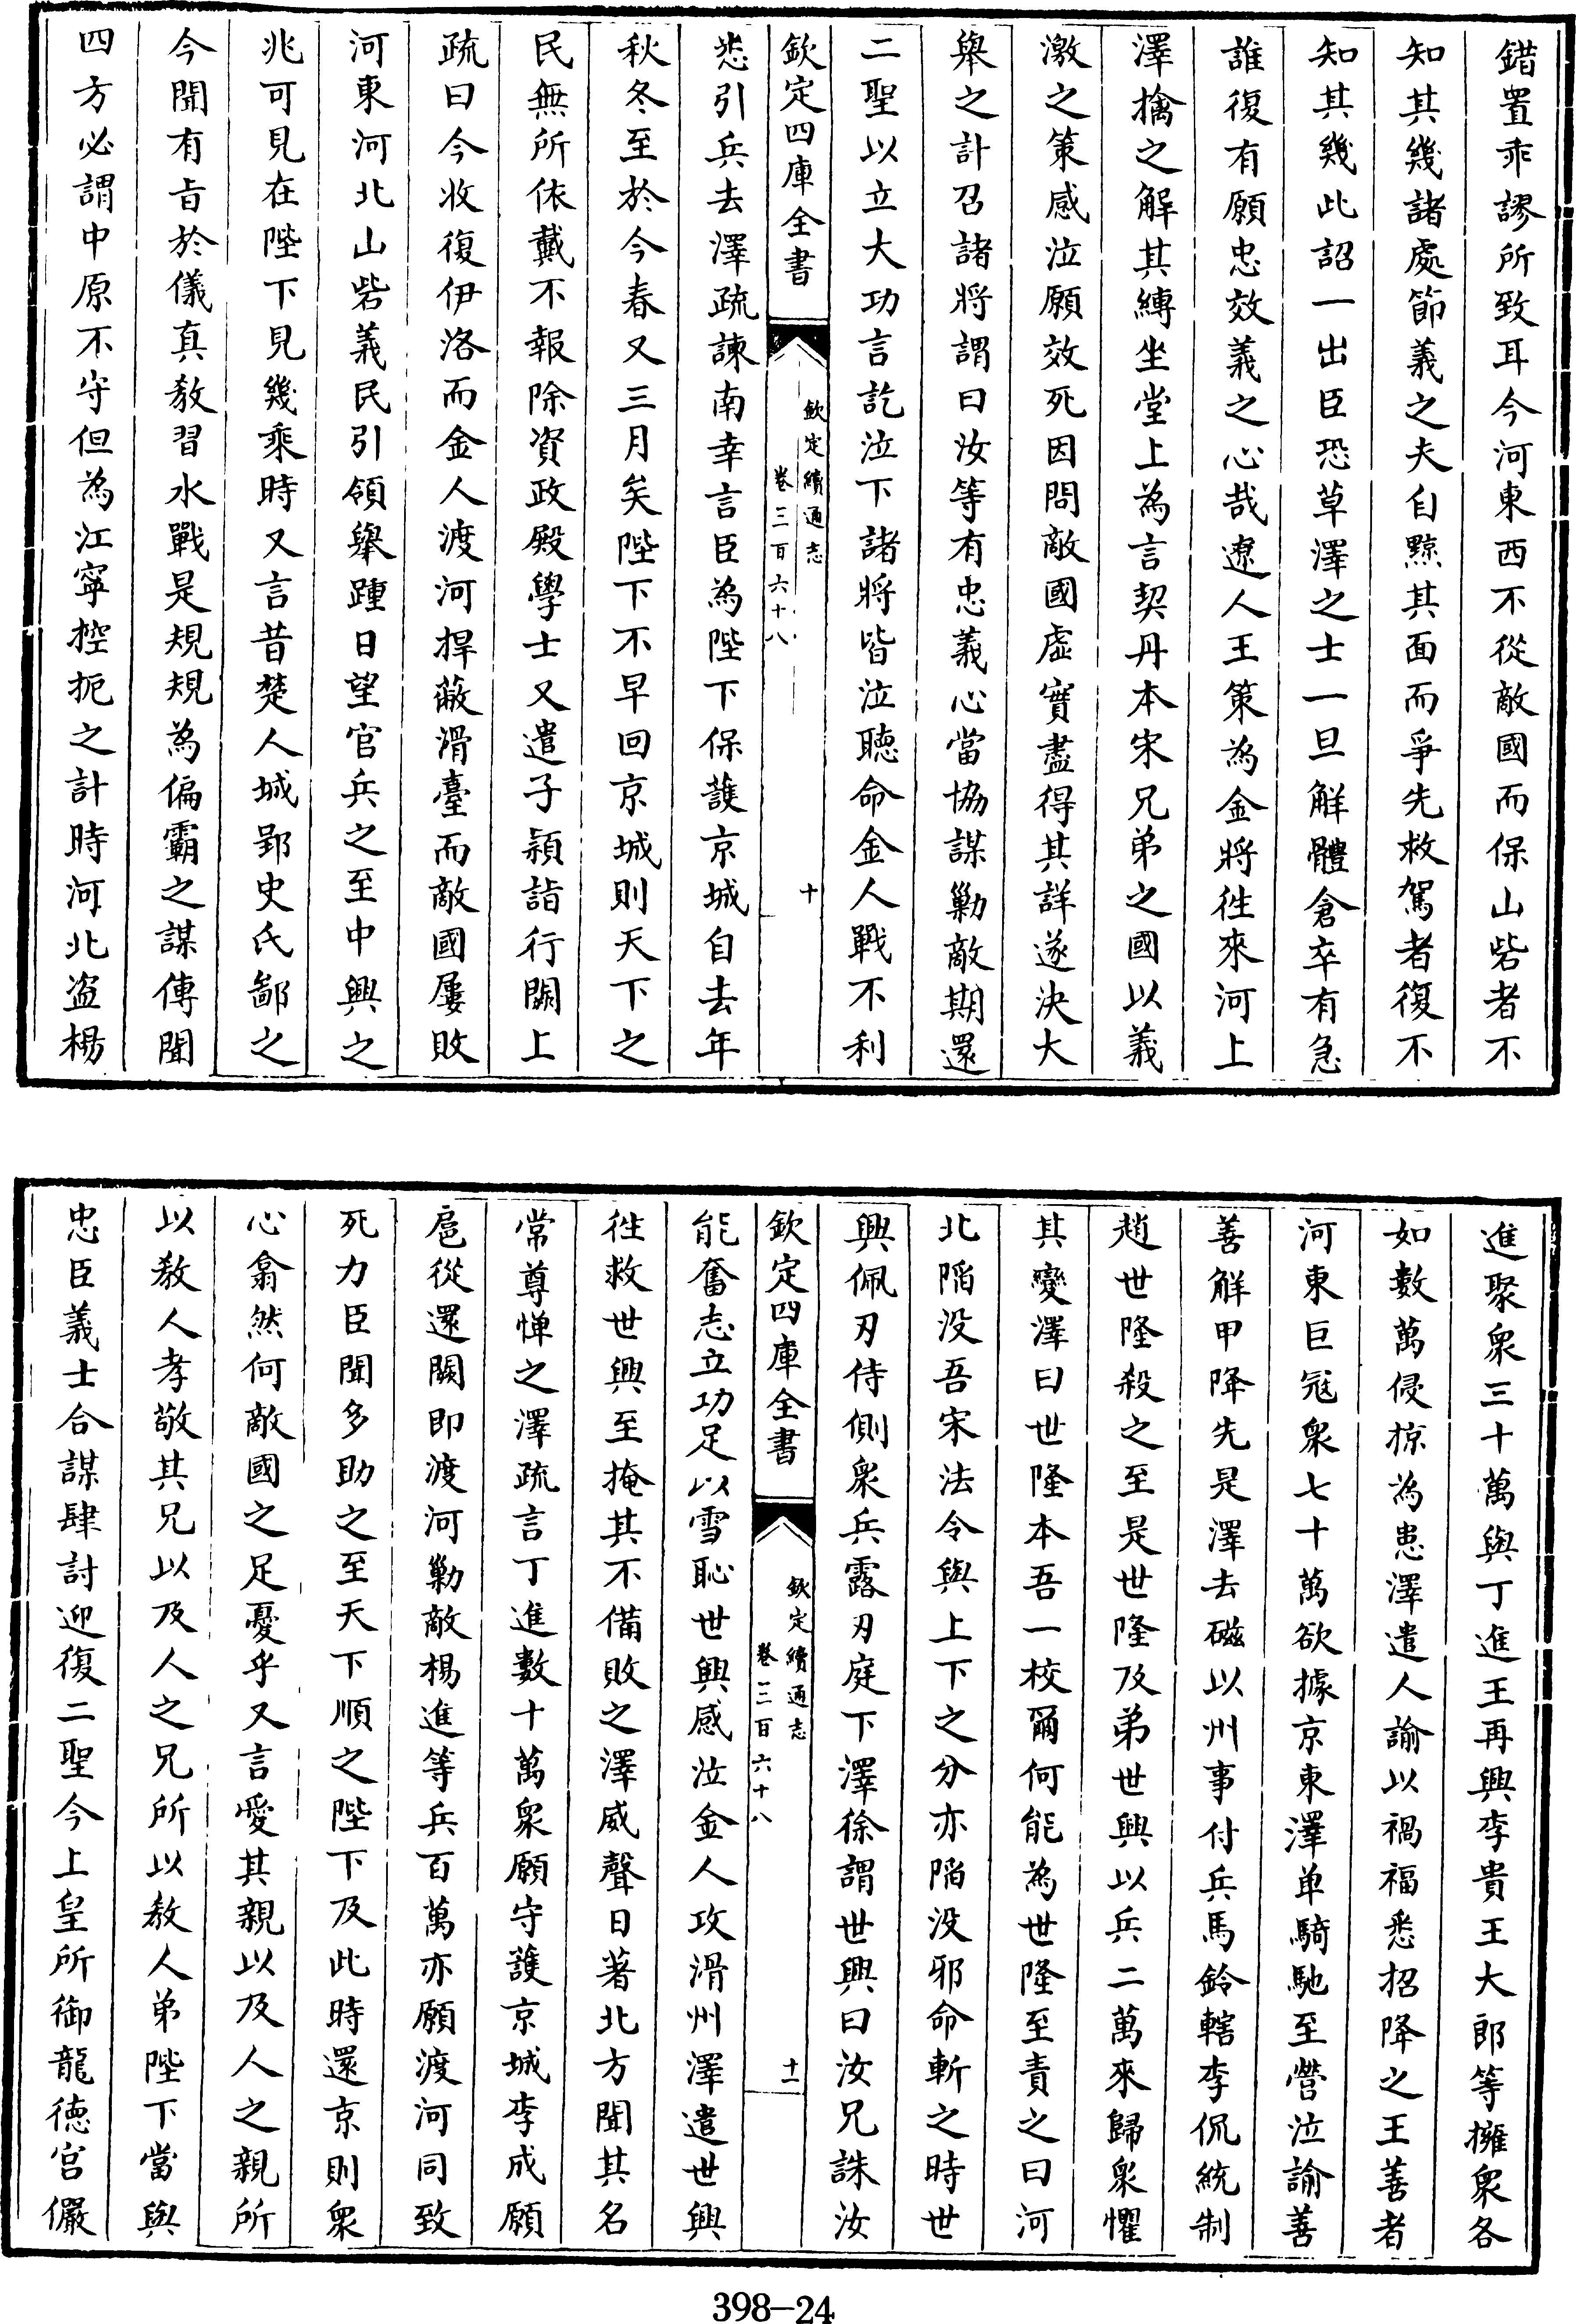 錯置乖謬所致耳今河東西不從敵國而保山砦者不
知其幾諸處節義之夫自黥其面而爭先救駕者復不
知其幾此詔一出臣恐草澤之士一旦解體倉卒有急
誰復有願忠效義之心哉遼人王策為金將徃來河上
澤擒之解其縛坐堂上為言契丹本宋兄弟之國以義
激之策感泣願效死因問敵國虛實盡得其詳遂決大
舉之計召諸將謂曰汝等有忠義心當協謀勦敵期還
二聖以立大功言訖泣下諸將皆泣聽命金人戰不利
欽定四庫全書
欽定續通志
卷三百六十八
十
悉引兵去澤疏諫南幸言臣為陛下保護京城自去年
秋冬至於今春又三月矣陛下不早回京城則天下之
民無所依戴不報除資政殿學士又遣子穎詣行闕上
疏曰今收復伊洛而金人渡河捍蔽滑臺而敵國屢敗
河東河北山砦義民引領舉踵日望官兵之至中興之
兆可見在陛下見幾乘時又言昔楚人城郢史氏鄙之
今聞有旨於儀真教習水戰是規規為偏霸之謀傳聞
四方必謂中原不守但為江寧控扼之計時河北盜楊
進聚衆三十萬與丁進王再興李貴王大郎等擁衆各
如數萬侵掠為患澤遣人諭以禍福悉招降之王善者
河東巨冦衆七十萬欲據京東澤单騎馳至營泣諭善
善解甲降先是澤去磁以州事付兵馬鈐轄李侃統制
趙世隆殺之至是世隆及弟世興以兵二萬來歸衆懼
其變澤曰世隆本吾一校爾何能為世隆至責之曰河
北陷没吾宋法令與上下之分亦陷没邪命斬之時世
興佩刃侍側衆兵露刃庭下澤徐謂世興曰汝兄誅汝
欽定四庫全書
欽定續通志
卷三百六十八
十一
能奮志立功足以雪恥世興感泣金人攻滑州澤遣世興
徃救世興至掩其不備敗之澤威聲日著北方聞其名
常尊惮之澤疏言丁進數十萬衆願守護京城李成願
扈從還闕即渡河勦敵楊進等兵百萬亦願渡河同致
死力臣聞多助之至天下順之陛下及此時還京則衆
心翕然何敵國之足憂乎又言愛其親以及人之親所
以教人孝敬其兄以及人之兄所以教人弟陛下當與
忠臣義士合謀肆討迎復二聖今上皇所御龍徳宫儼
398-24